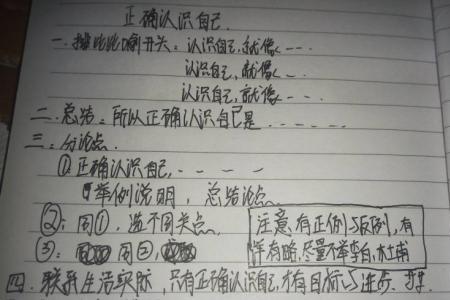 正确认识自己.
一. 排比比喻开头: 认识自己,就像---.
认识自己,就像---.
认识自己,就像---.
二. 总结: 所以正确认识自己是-----.
三: 分论点.
①正确认识自己,----
举例说明, 总结论点.
②: 同①, 选不同关点.
③: 同②,
注意,有正例与反例,有
详有略,尽量不举李白,杜甫
四. 联系生活实际, 只有正确认识自己,才有目标与进步.